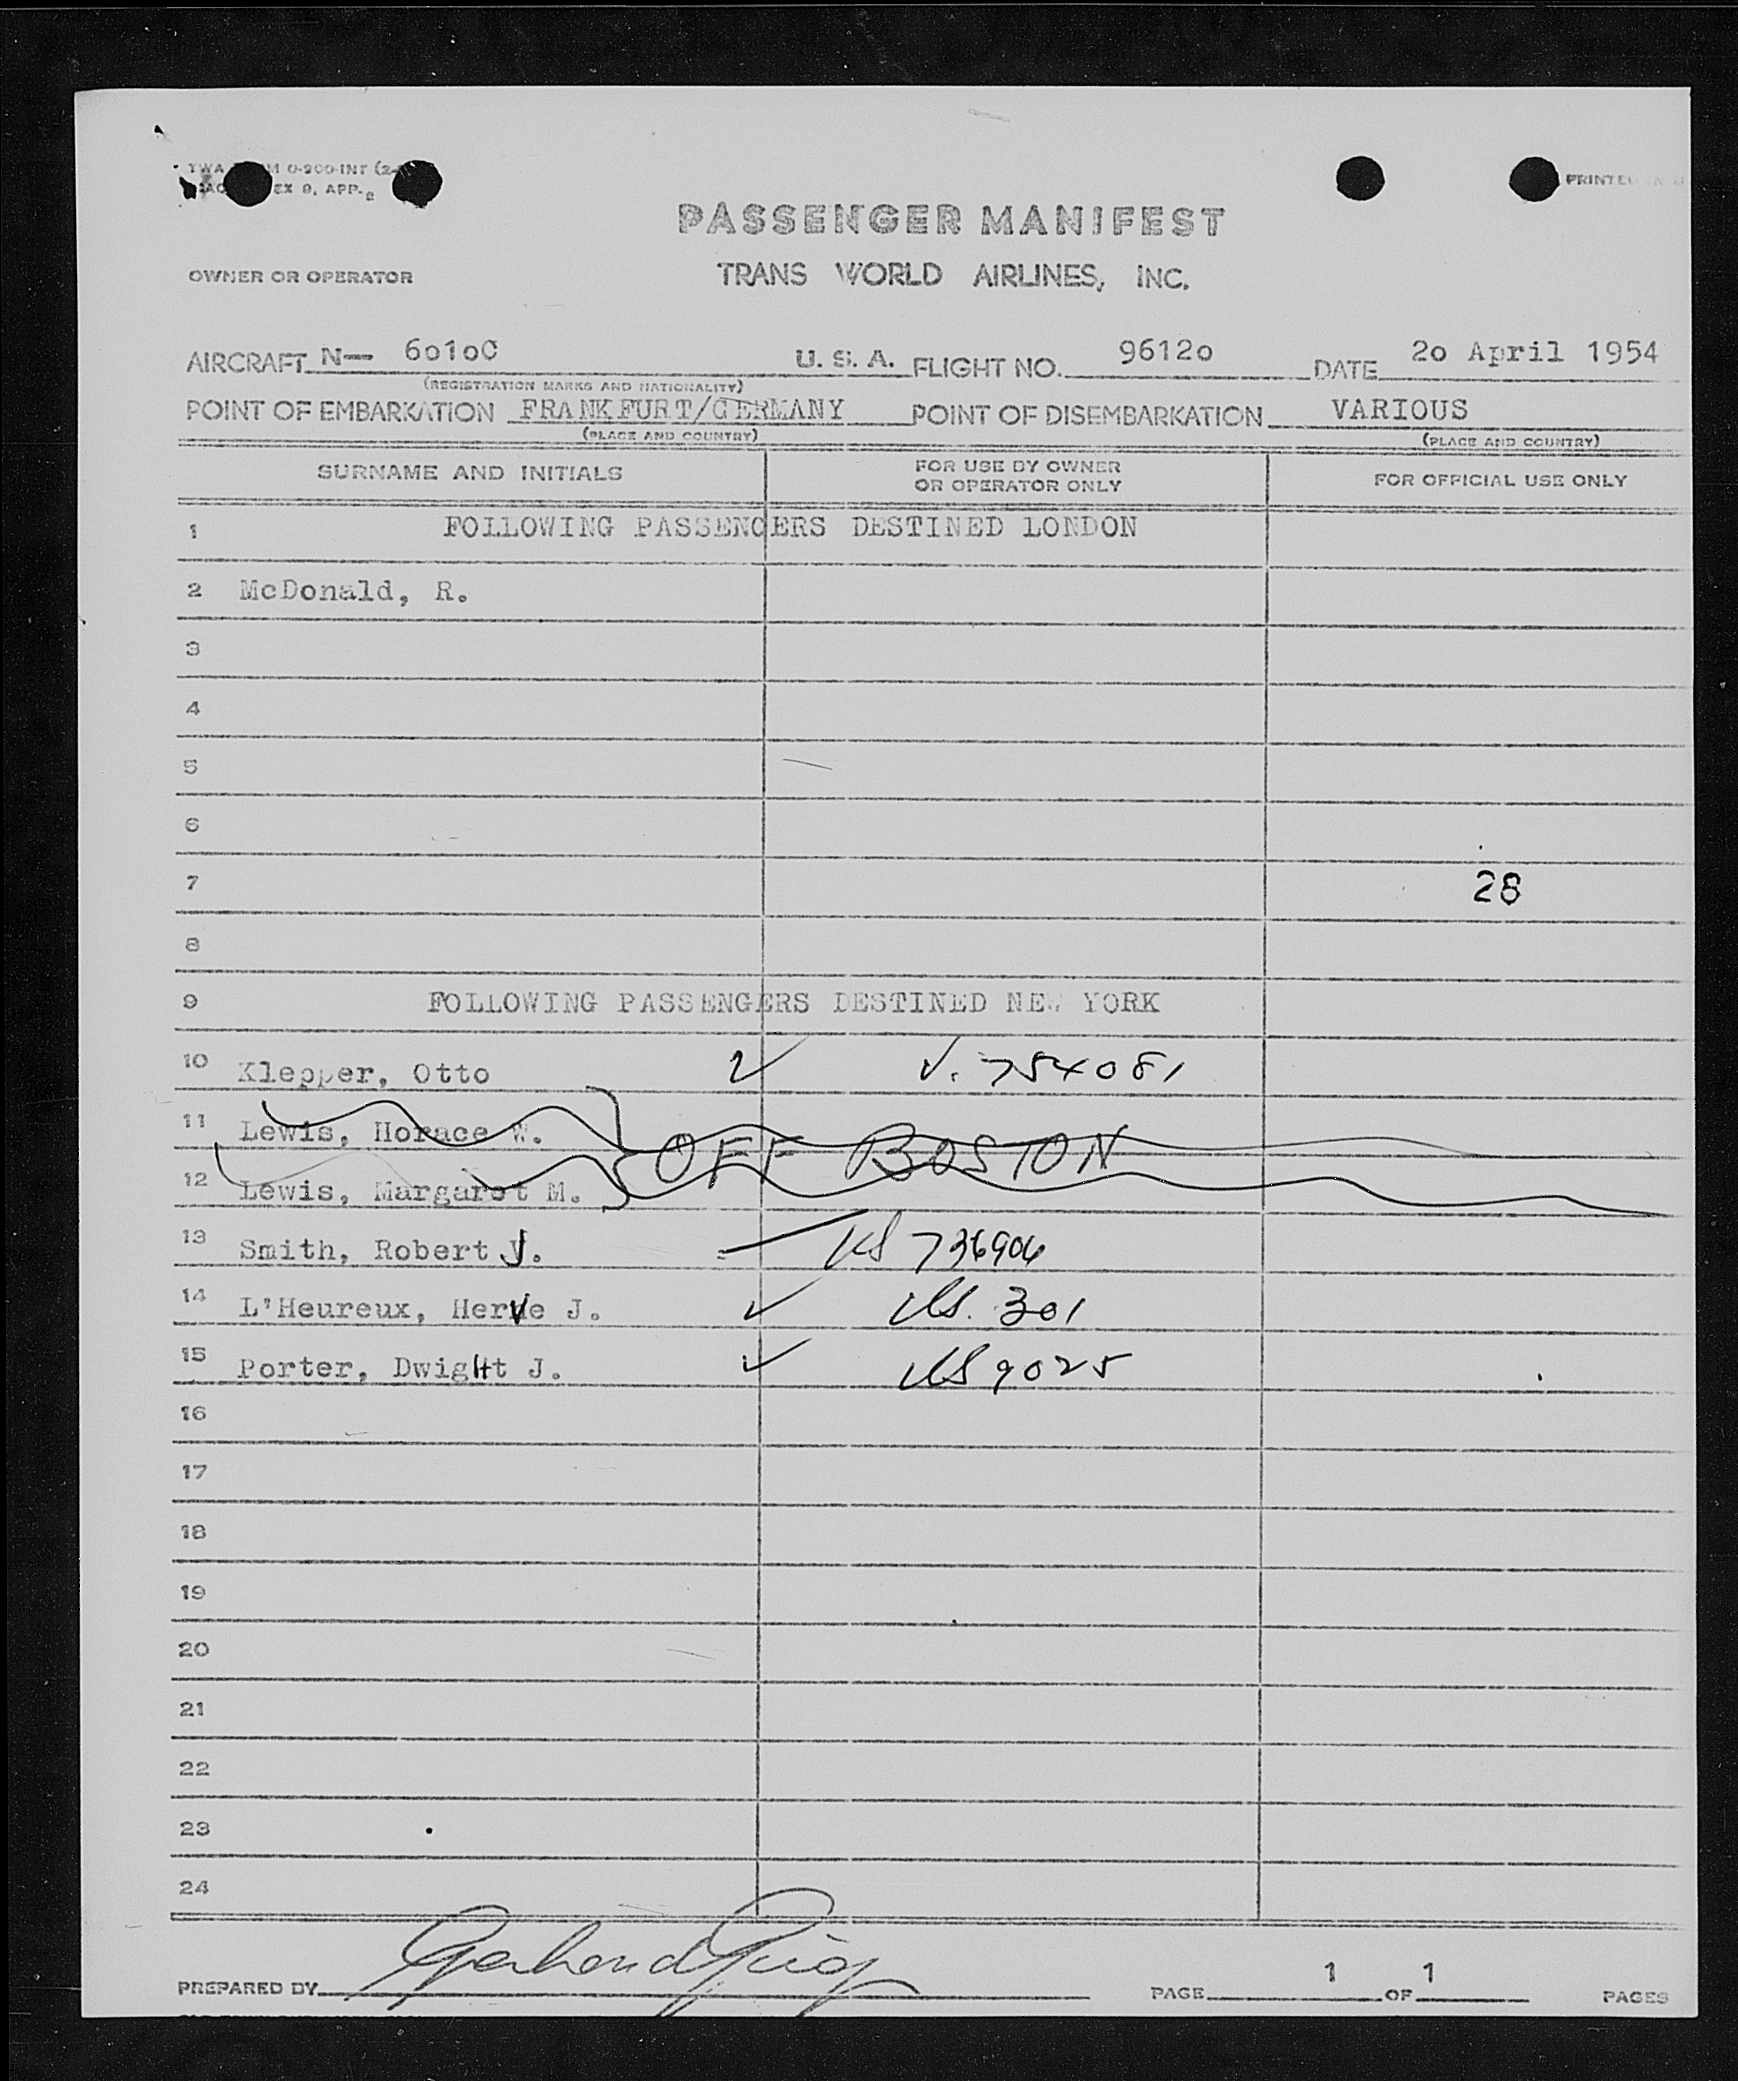 TWA M 0-900-INT (2-
EX 9, APP. 2
PRINTED
PASSENGER MANIFEST
OWNER OR OPERATOR TRANS WORLD AIRLINES, INC.
AIRCRAFT N— 6o1oC U. S. A. FLIGHT NO. 9612o DATE 2o April 1954
(REGISTRATION MARKS AND NATIONALITY)
POINT OF EMBARKATION FRANKFURT/GERMANY POINT OF DISEMBARKATION VARIOUS
(PLACE AND COUNTRY) (PLACE AND COUNTRY)
SURNAME AND INITIALS FOR USE BY OWNER OR OPERATOR ONLY FOR OFFICIAL USE ONLY
1 FOLLOWING PASSENGERS DESTINED LONDON
2 McDonald, R.
3
4
5
6
7 28
8
9 FOLLOWING PASSENGERS DESTINED NEW YORK
10 Klepper, Otto ✓ V. 754081
11 Lewis, Horace W.
OFF BOSTON
12 Lewis, Margaret M.
13 Smith, Robert J. US 736906
14 L'Heureux, Herve J. ✓ US. 301
15 Porter, Dwight J. ✓ US 9025
16
17
18
19
20
21
22
23
24
PREPARED BY PAGE 1 OF 1 PAGES